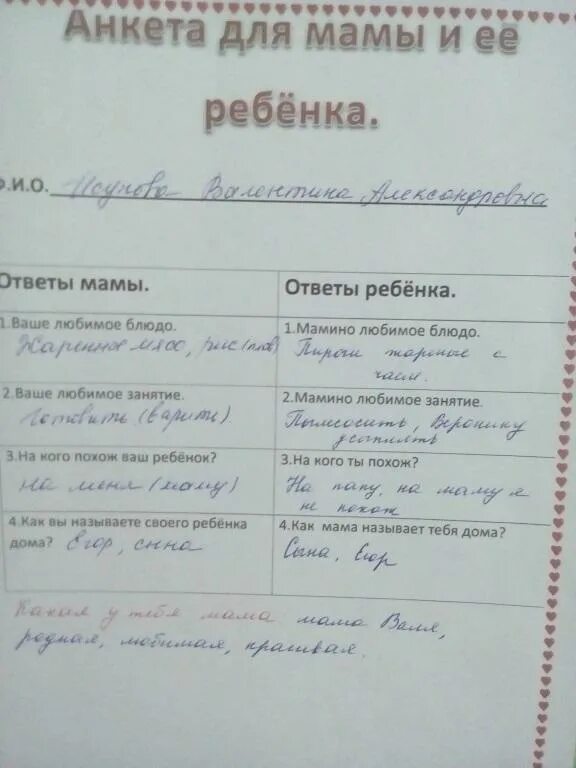 Анкета для мамы и её
ребёнка.
Ф.И.О. Валентина Александровна
Ответы мамы.
Ответы ребёнка.
1.Ваше любимое блюдо.
Жаренное мясо, рис (плов)
1.Мамино любимое блюдо.
Пироги жареные с
чаем.
2.Ваше любимое занятие.
Готовить (варить).
2.Мамино любимое занятие.
Пылесосить, Веронику
усыплять
3.На кого похож ваш ребёнок?
На меня (маму)
3.На кого ты похож?
На папу, на маму я
не похож
4.Как вы называете своего ребёнка
дома? Егор, сына
4.Как мама называет тебя дома?
Сына, Егор
Какая у тебя мама мама Валя,
родная, любимая, красивая.